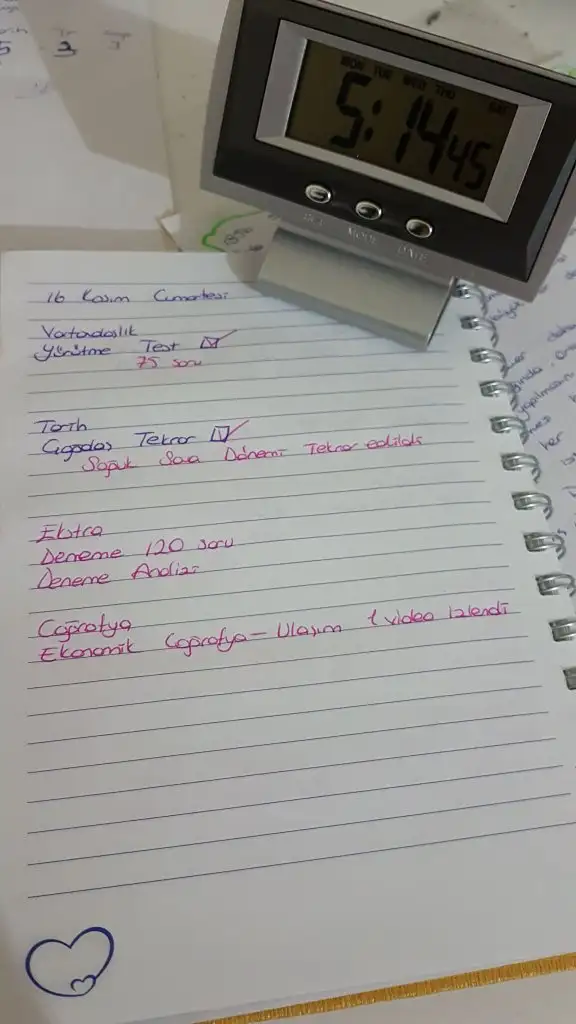 5:14 45
MON TUE WED THU SAT
SET MODE DATE
16 Kasım Cumartesi
Vatandaşlık
Yürütme Test
75 soru
Tarih
Çağdaş Tekrar
Soğuk Savaş Dönemi Tekrar edildi
Ekstra
Deneme 120 soru
Deneme Analizi
Coğrafya
Ekonomik Coğrafya - Ulaşım 1 video izlendi
her